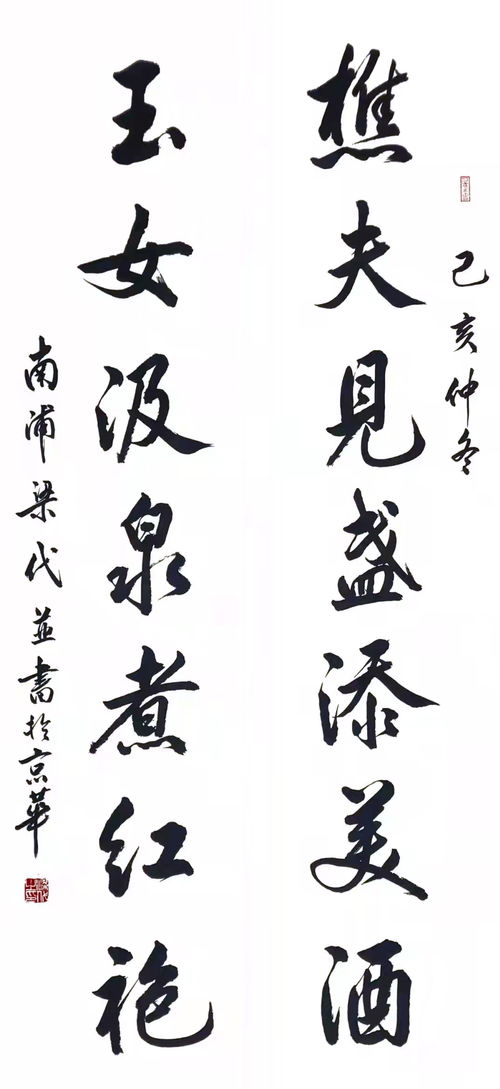 己亥仲冬
樵夫見盏添美酒
玉女汲泉煮红袍
南浦梁代并書於京華